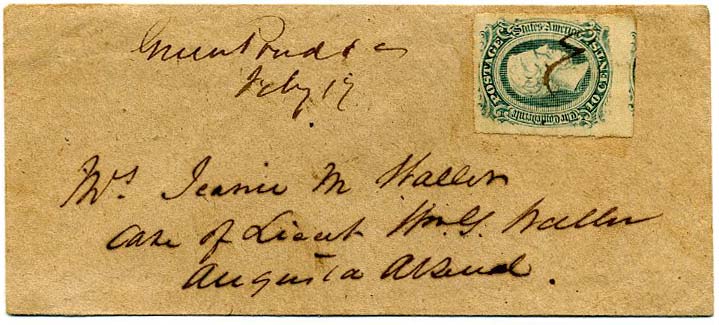 Green Pond S C
Feby 19
POSTAGE
States America
10 CENTS
The Confederate
Mrs Jeanie M Waller
Care of Lieut Wm G. Waller
Augusta Arsenal.